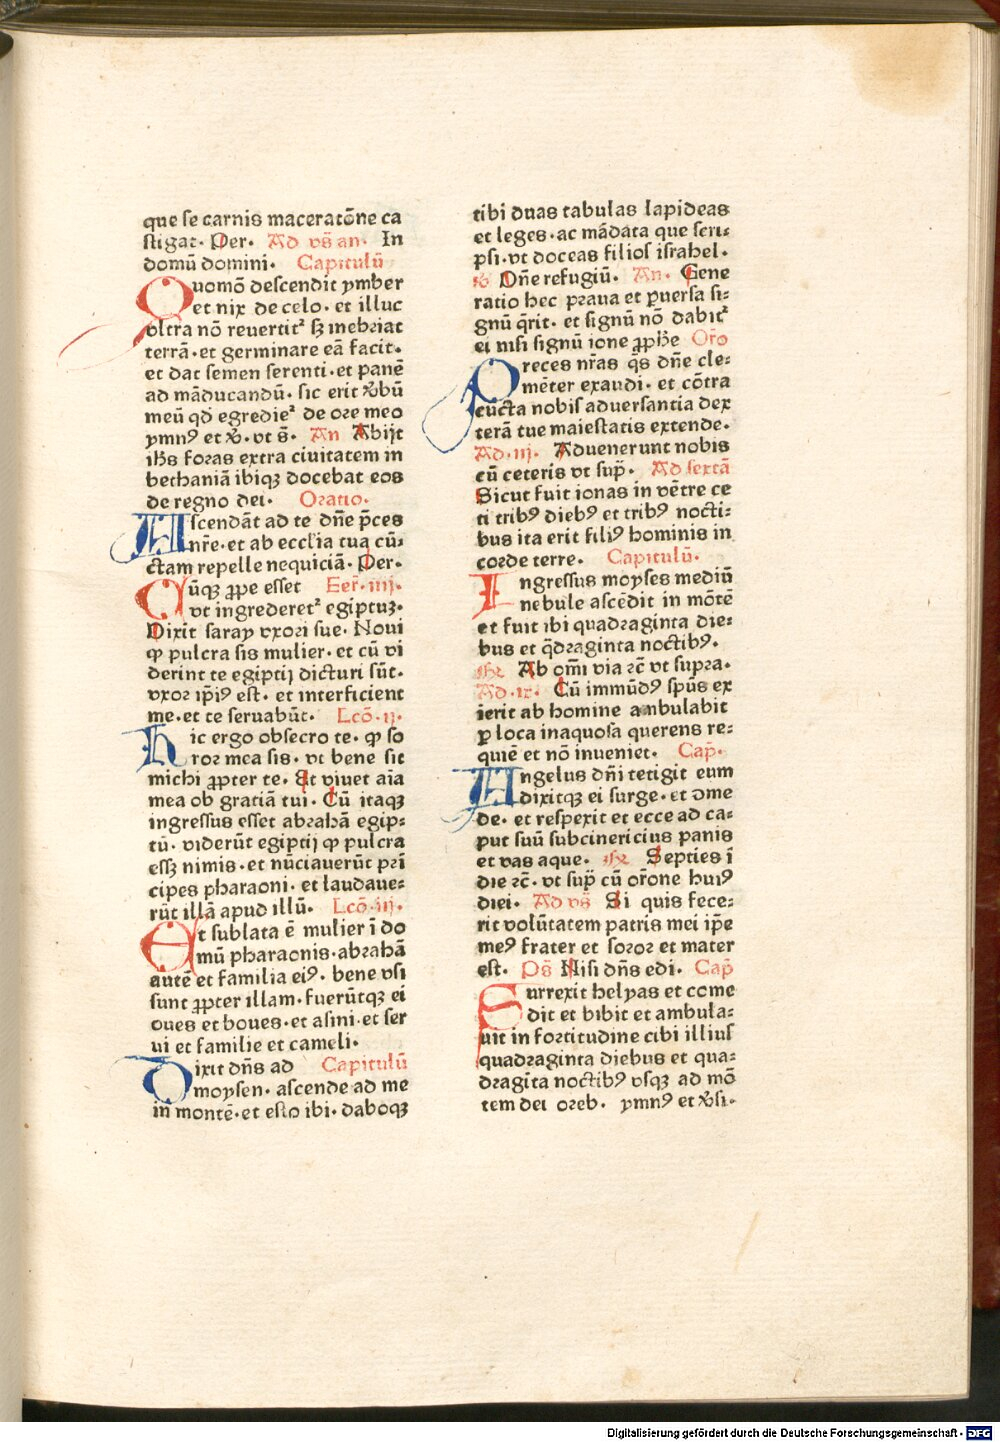 que se carnis maceratōne ca
stigat. Per. Ad vs̄ an. In
domū domini. Capitulū
Quomō descendit ymber
et nix de celo. et illuc
vltra nō reuertit᷑ sꝫ inebriat
terrā. et germinare eā facit.
et dat semen serenti. et panē
ad māducandū. sic erit v̾bū
meū qd̄ egredie᷑ de ore meo
ymnꝰ et v̾. vt s̄. An Abijt
ih̄s foras extra ciuitatem in
bethaniā ibiqꝫ docebat eos
de regno dei. Oratio.
Ascendāt ad te dn̄e p̄ces
nr̄e. et ab eccl̄ia tua cū-
ctam repelle nequiciā. Per.
Cūqꝫ ꝓpe esset Fer̄. iiij.
vt ingrederet᷑ egiptuꝫ.
Dixit saray vxori sue. Noui
ꝙ pulcra sis mulier. et cū vi
derint te egiptij dicturi sūt.
vxor ip̄iꝰ est. et interficient
me. et te seruabūt. Lcō. ij.
Hic ergo obsecro te. ꝙ so
ror mea sis. vt bene sit
michi ꝓpter te. Et viuet aīa
mea ob gratiā tui. Cū itaqꝫ
ingressus esset abrahā egip-
tū. viderūt egiptij ꝙ pulcra
essꝫ nimis. et nūciauerūt pri̅
cipes pharaoni. et laudaue-
rūt illā apud illū. Lcō. iij.
Et sublata ē mulier ī do
mū pharaonis. abrahā
autē et familia eiꝰ. bene vsi
sunt ꝓpter illam. fuerūtqꝫ ei
oues et boues. et asini. et ser
ui et familie et cameli.
Dixit dn̄s ad Capitulū
moysen. ascende ad me
in montē. et esto ibi. daboqꝫ
tibi duas tabulas lapideas
et leges. ac mādata que scri-
psi. vt doceas filios israhel.
v̾ Dn̄e refugiū. An. Gene
ratio hec praua et ꝑuersa si-
gnū q̄rit. et signū nō dabit᷑
ei nisi signū ione ꝓph̄e Or̄o
Preces nr̄as q̄s dn̄e cle-
mēter exaudi. et cōtra
cūcta nobis aduersantia dex
terā tue maiestatis extende.
Ad. iij. Aduenerunt nobis
cū ceteris vt sup̄. Ad sextā
Sicut fuit ionas in vētre ce
ti tribꝰ diebꝰ et tribꝰ nocti-
bus ita erit filiꝰ hominis in
corde terre. Capitulū.
Ingressus moyses mediū
nebule ascēdit in mōtē
et fuit ibi quadraginta die-
bus et q̄draginta noctibꝰ.
℟ Ab om̄i via ⁊c̄ vt supra.
Ad. ix. Cū immūdꝰ sp̄us ex
ierit ab homine ambulabit
ꝑ loca inaquosa querens re-
quiē et nō inueniet. Cap̄.
Angelus dn̄i tetigit eum
dixitqꝫ ei surge. et ꝯme
de. et respexit et ecce ad ca-
put suū subcinericius panis
et vas aque. ℟ Septies ī
die ⁊c̄. vt sup̄ cū or̄one huiꝰ
diei. Ad vs̄ Si quis fece-
rit volūtatem patris mei ip̄e
meꝰ frater et soror et mater
est. Ps̄ Nisi dn̄s edi. Cap̄
Surrexit helyas et come
dit et bibit et ambula-
uit in fortitudine cibi illius
quadraginta diebus et qua-
dragīta noctibꝰ vsqꝫ ad mō
tem dei oreb. ymnꝰ et v̾si.
Digitalisierung gefördert durch die Deutsche Forschungsgemeinschaft - DFG